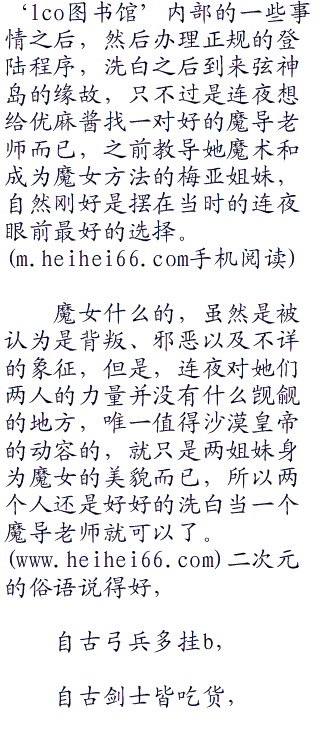 ‘lco图书馆’内部的一些事
情之后，然后办理正规的登
陆程序，洗白之后到来弦神
岛的缘故，只不过是连夜想
给优麻酱找一对好的魔导老
师而已，之前教导她魔术和
成为魔女方法的梅亚姐妹，
自然刚好是摆在当时的连夜
眼前最好的选择。
(m.heihei66.com手机阅读)
魔女什么的，虽然是被
认为是背叛、邪恶以及不详
的象征，但是，连夜对她们
两人的力量并没有什么觊觎
的地方，唯一值得沙漠皇帝
的动容的，就只是两姐妹身
为魔女的美貌而已，所以两
个人还是好好的洗白当一个
魔导老师就可以了。
(www.heihei66.com)二次元
的俗语说得好，
自古弓兵多挂b，
自古剑士皆吃货，